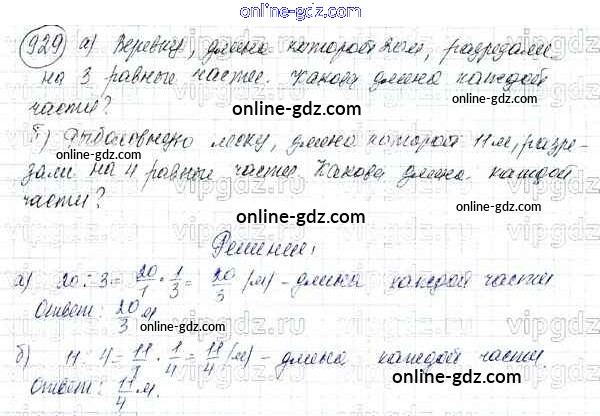 online-gdz.com
929 а) Веревку, длина которой 20м, разрезали
на 3 равные части. Какова длина каждой
части?
online-gdz.com
б) Рыболовную леску, длина которой 11м, разре-
зали на 4 равные части. Какова длина каждой
online-gdz.com
части?
online-gdz.com
Решение:
а) 20 : 3 = 20/1 · 1/3 = 20/3 (м) - длина каждой части
Ответ: 20/3 м
online-gdz.com
online-gdz.com
б) 11 : 4 = 11/1 · 1/4 = 11/4 (м) - длина каждой части.
Ответ: 11/4 м.
online-gdz.com
online-gdz.com